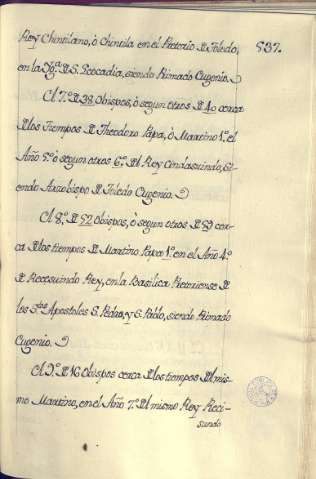 Rey Chintilano, ò Chintila en el Pretorio de Toledo,
537.
en la Yg.ª de S. Leocadia, siendo Primado Eugenio.
El 7.º de 38 Obispos, ò segun otros de 40 cerca
de los Tiempos de Theodoro Papa, ò Martino 1.º el
Año 5.º ò segun otros 6.º del Rey Cindasuindo, si-
endo Arzobispo de Toledo Eugenio.
El 8.º de 52 Obispos, ò segun otros de 59 cer-
ca de los tiempos de Martino Papa 1.º en el Año 4.º
de Recesuindo Rey, en la Basilica Pretoriense de
los S.tos Apostoles S. Pedro, y S. Pablo, siendo Primado
Eugenio.
El 9.º de 16 Obispos cerca de los tiempos del mis-
mo Martino, en el Año 7.º del mismo Rey Reci-
sundo